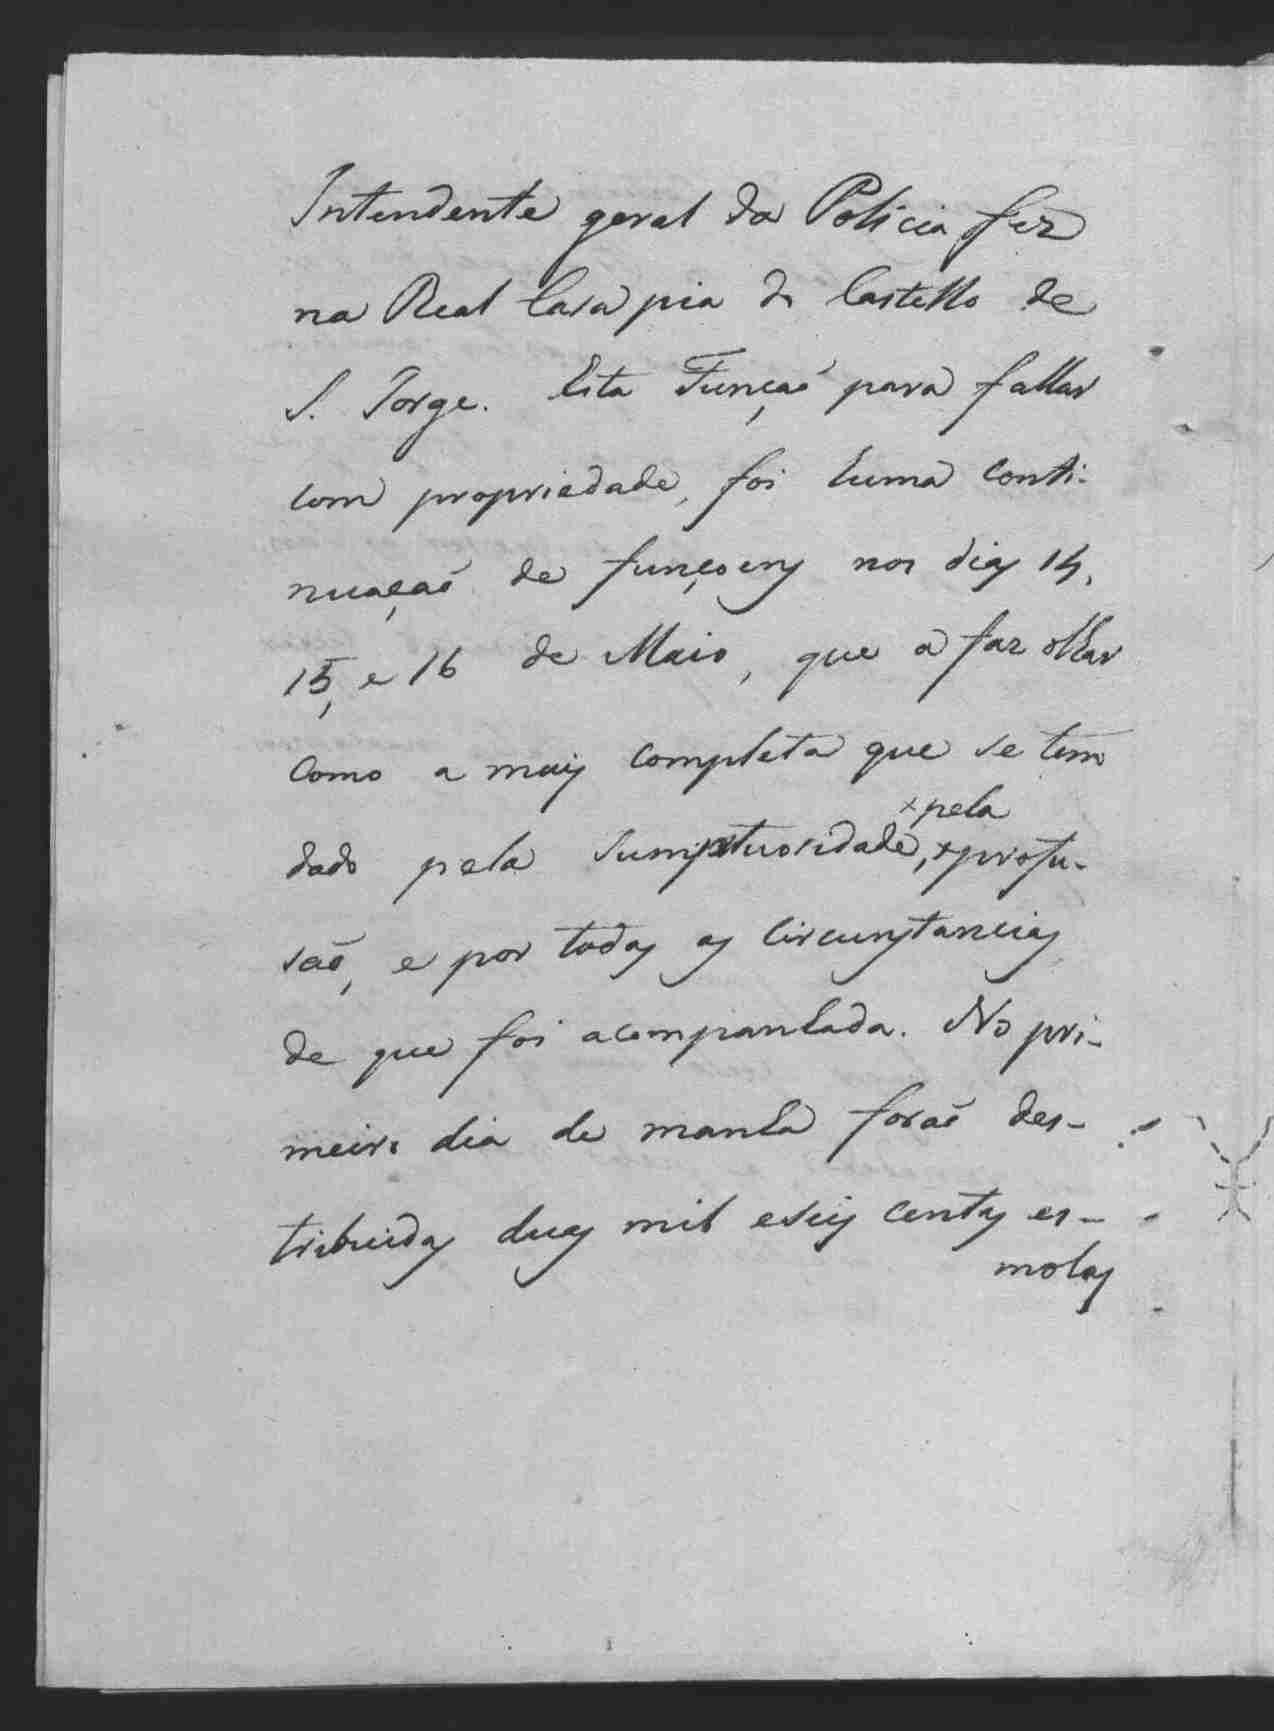 Intendente geral da Policia fez
na Real Casa pia do Castello de
S. Jorge. Esta Funçaõ para fallar
com propriedade, foi huma conti-
nuaçaõ de funçoens nos dias 14,
15, e 16 de Maio, que a faz olhar
como a mais completa que se tem
dado pela sumptuosidade, × profu-
× pela
saõ, e por todas as circunstancias
de que foi acompanhada. No pri-
meiro dia de manha foraõ des-
tribuidas duas mil e seis centas es-
molas